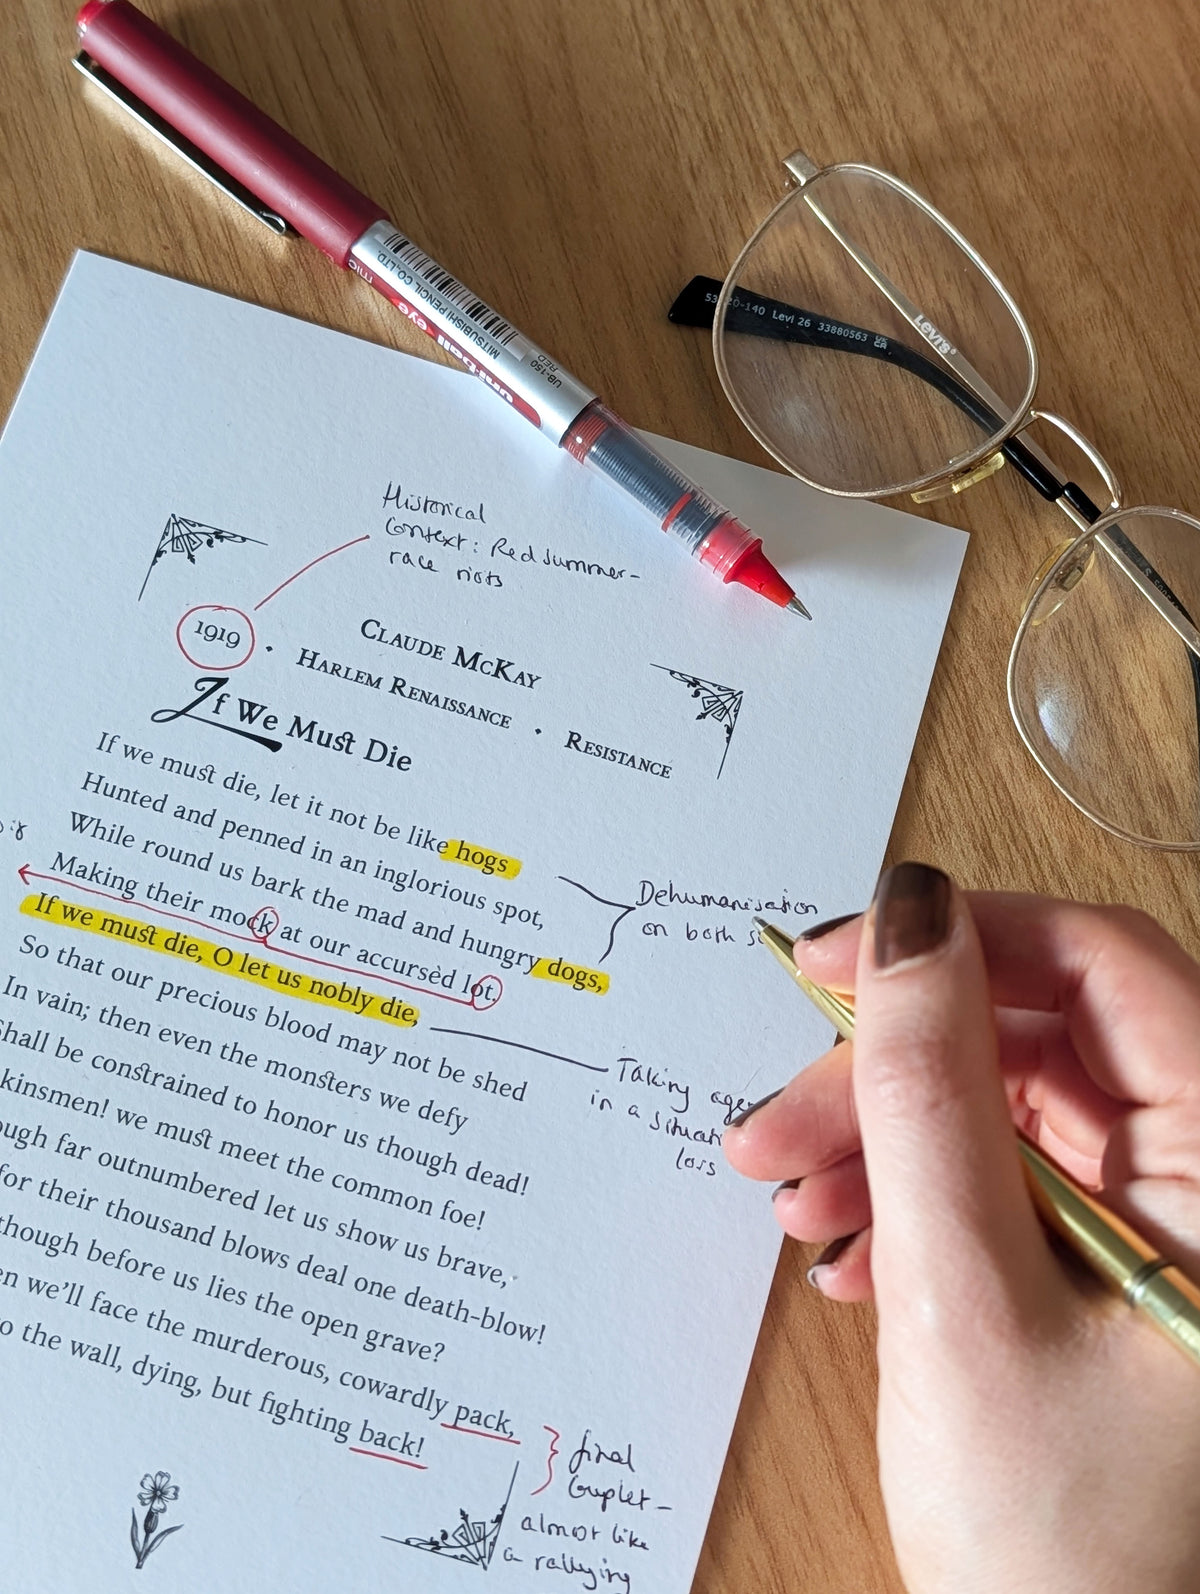 uni-ball eye
mic
MITSUBISHI PENCIL CO.,LTD.
UB-150
RED
53 20-140 Levi 26 33880563 UK CA
Levi's
Historical
Context: Red Summer-
race riots
1919 • Harlem Renaissance • Resistance
Claude McKay
If We Must Die
If we must die, let it not be like hogs
Hunted and penned in an inglorious spot,
While round us bark the mad and hungry dogs,
Making their mock at our accursèd lot.
If we must die, O let us nobly die,
So that our precious blood may not be shed
In vain; then even the monsters we defy
Shall be constrained to honor us though dead!
kinsmen! we must meet the common foe!
ough far outnumbered let us show us brave,
for their thousand blows deal one death-blow!
though before us lies the open grave?
en we'll face the murderous, cowardly pack,
o the wall, dying, but fighting back!
Dehumanisation
on both s
Taking age
in a situat
loss
final
Couplet-
almost like
a rallying